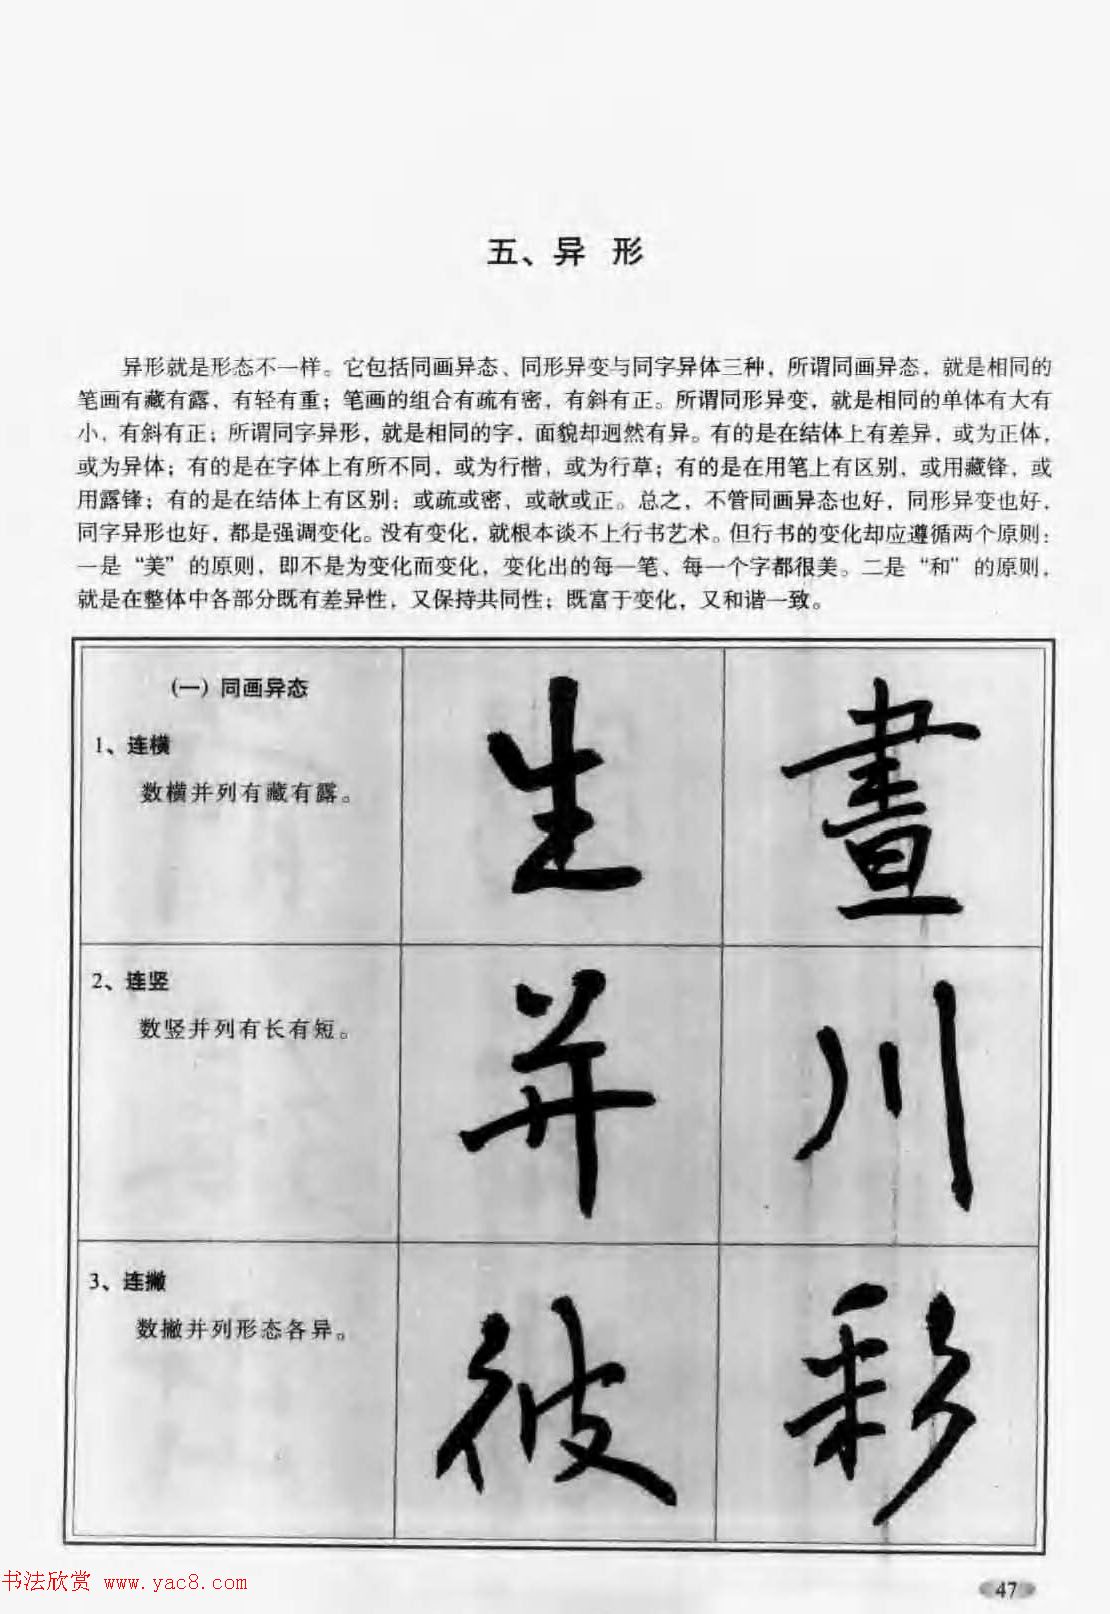 五、异 形
异形就是形态不一样。它包括同画异态、同形异变与同字异体三种，所谓同画异态，就是相同的
笔画有藏有露，有轻有重；笔画的组合有疏有密，有斜有正。所谓同形异变，就是相同的单体有大有
小，有斜有正；所谓同字异形，就是相同的字，面貌却迥然有异。有的是在结体上有差异，或为正体，
或为异体；有的是在字体上有所不同，或为行楷，或为行草；有的是在用笔上有区别，或用藏锋，或
用露锋；有的是在结体上有区别；或疏或密，或欹或正。总之，不管同画异态也好，同形异变也好，
同字异形也好，都是强调变化。没有变化，就根本谈不上行书艺术。但行书的变化却应遵循两个原则：
一是“美”的原则，即不是为变化而变化，变化出的每一笔、每一个字都很美。二是“和”的原则，
就是在整体中各部分既有差异性，又保持共同性；既富于变化，又和谐一致。
(一) 同画异态
1、连横
数横并列有藏有露。
生 晝
2、连竖
数竖并列有长有短。
并 川
3、连撇
数撇并列形态各异。
彼 彩
书法欣赏 www.yac8.com
47